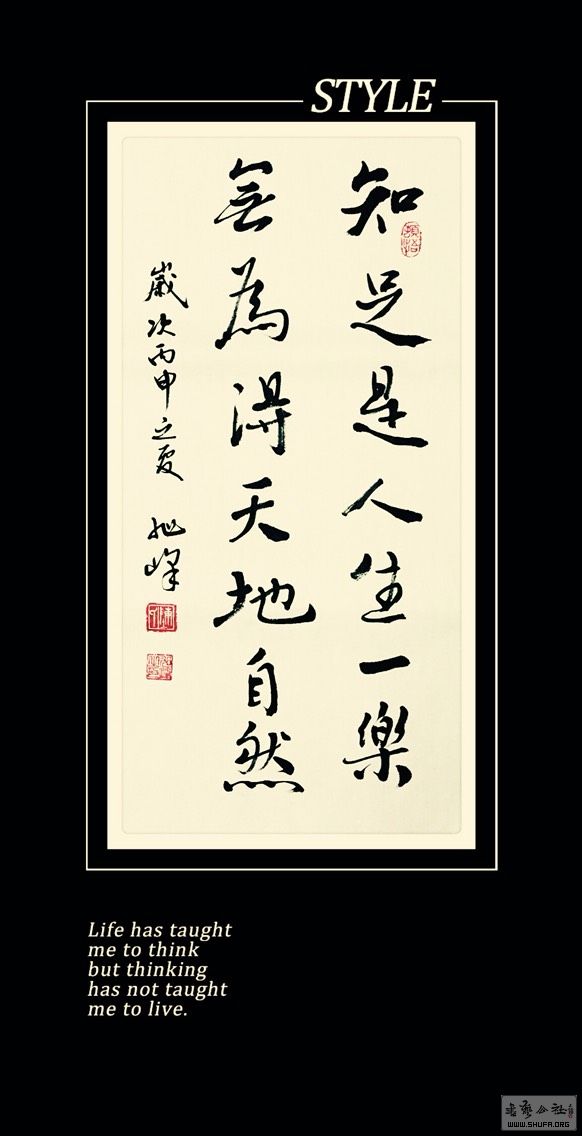 STYLE
知足是人生一樂
無為得天地自然
歲次丙申之夏
峰
Life has taught
me to think
but thinking
has not taught
me to live.
書藝公社
WWW.SHUFA.ORG